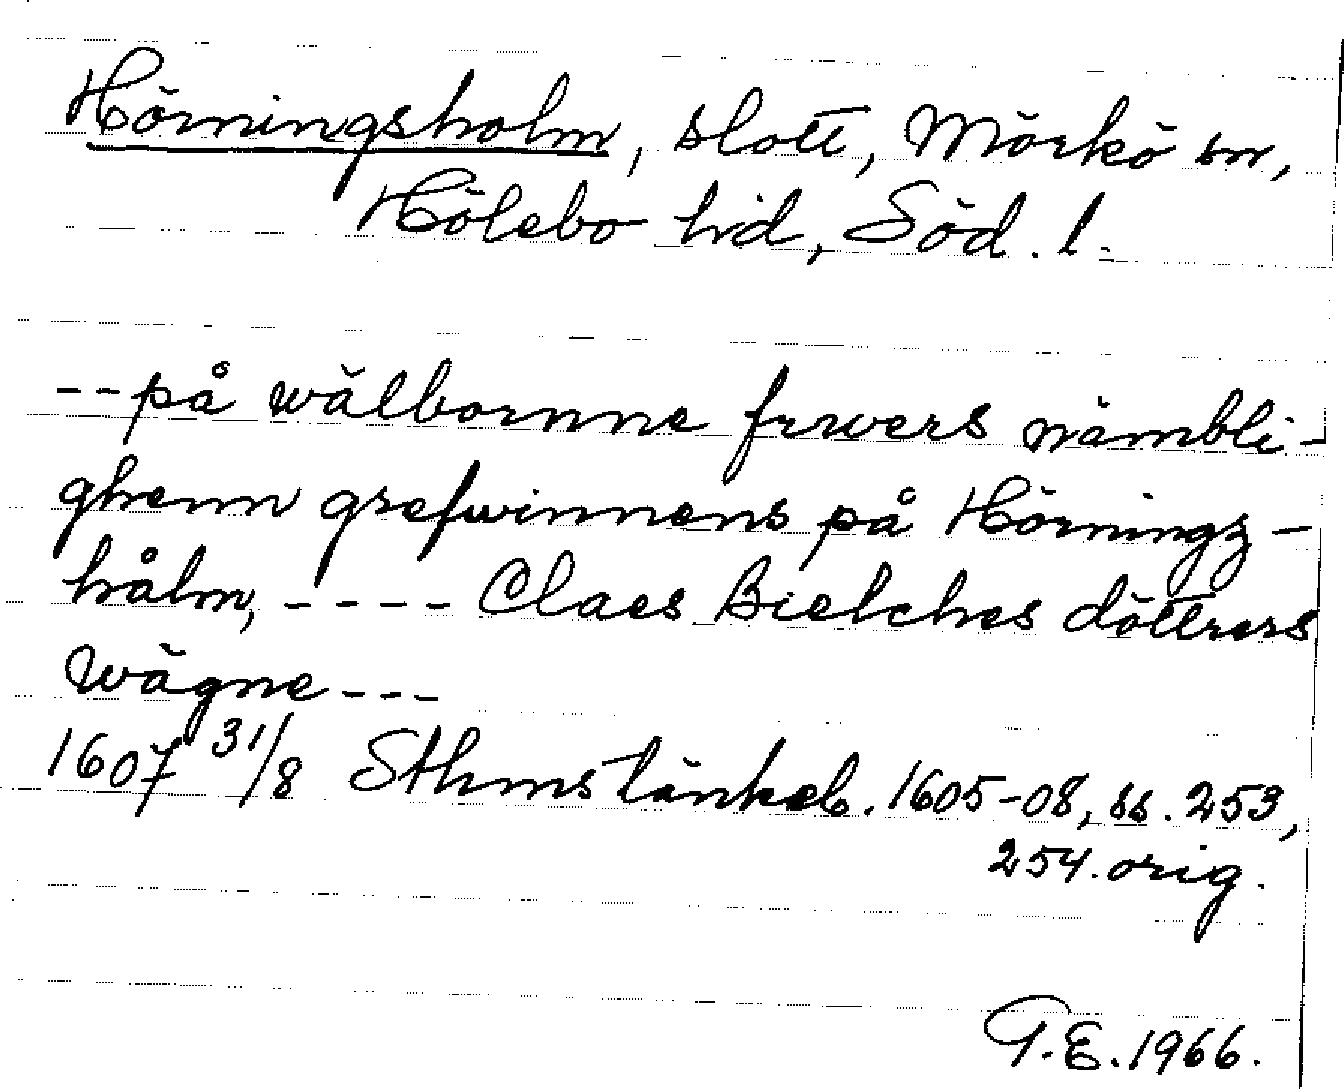 Hörningsholm, slott, Mörkö sn,
Hölebo hd, Söd. l.
-- på wälbornne frwers nämbli-
ghenn grefwinnens på Hörningz-
hålm, ---- Claes Bielches döttrers
wägne ---
1607 31/8 Sthms tänkeb. 1605-08, ss. 253,
254. orig.
T.E. 1966.